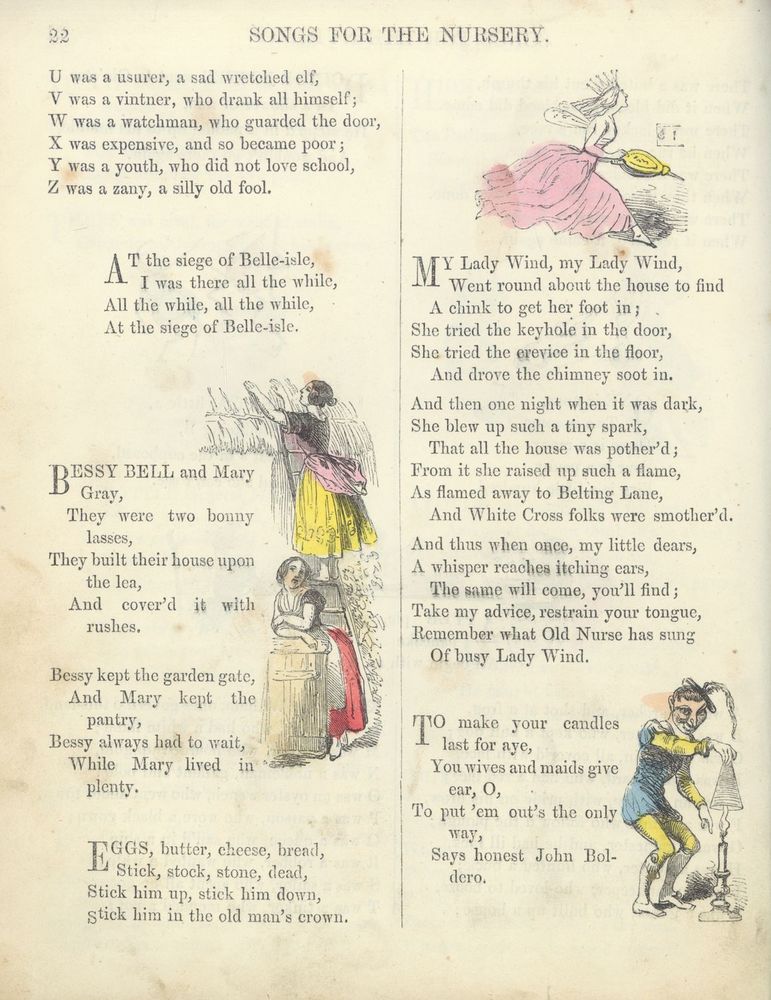 22
SONGS FOR THE NURSERY.
U was a usurer, a sad wretched elf,
V was a vintner, who drank all himself;
W was a watchman, who guarded the door,
X was expensive, and so became poor;
Y was a youth, who did not love school,
Z was a zany, a silly old fool.
AT the siege of Belle-isle,
I was there all the while,
All the while, all the while,
At the siege of Belle-isle.
BESSY BELL and Mary
Gray,
They were two bonny
lasses,
They built their house upon
the lea,
And cover'd it with
rushes.
Bessy kept the garden gate,
And Mary kept the
pantry,
Bessy always had to wait,
While Mary lived in
plenty.
EGGS, butter, cheese, bread,
Stick, stock, stone, dead,
Stick him up, stick him down,
Stick him in the old man's crown.
MY Lady Wind, my Lady Wind,
Went round about the house to find
A chink to get her foot in;
She tried the keyhole in the door,
She tried the crevice in the floor,
And drove the chimney soot in.
And then one night when it was dark,
She blew up such a tiny spark,
That all the house was pother'd;
From it she raised up such a flame,
As flamed away to Belting Lane,
And White Cross folks were smother'd.
And thus when once, my little dears,
A whisper reaches itching ears,
The same will come, you'll find;
Take my advice, restrain your tongue,
Remember what Old Nurse has sung
Of busy Lady Wind.
TO make your candles
last for aye,
You wives and maids give
ear, O,
To put 'em out's the only
way,
Says honest John Bol-
dero.